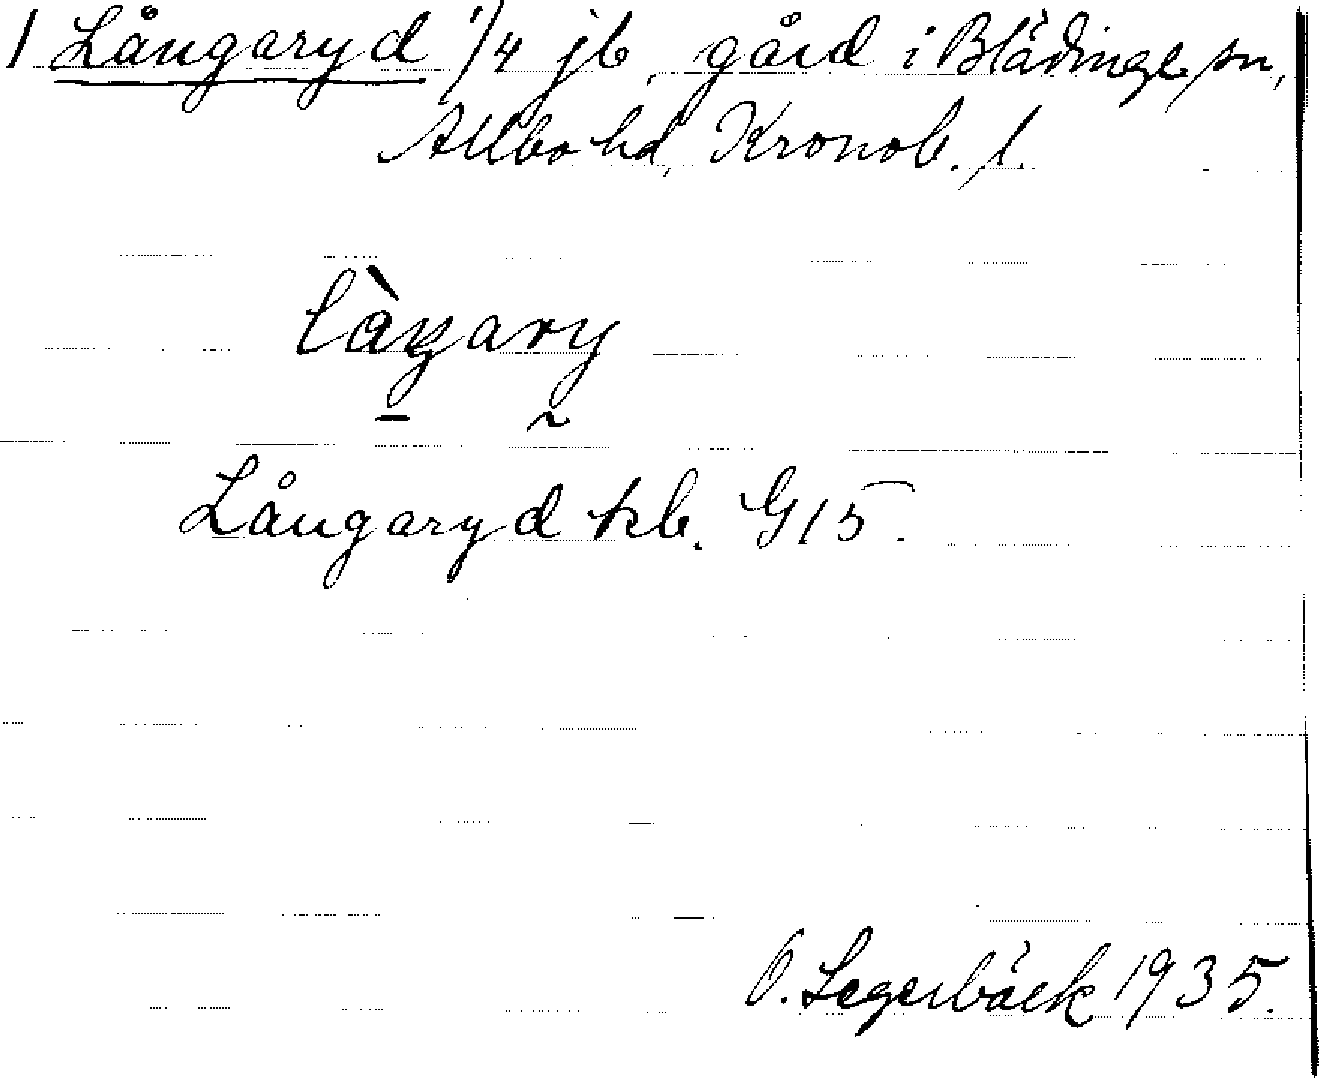 1 Långaryd 1/4 jb, gård i Blädinge sn,
Allbo hd, Kronob. l.
làŋary
Långaryd kb. G15.
O. Segerbäck 1935.